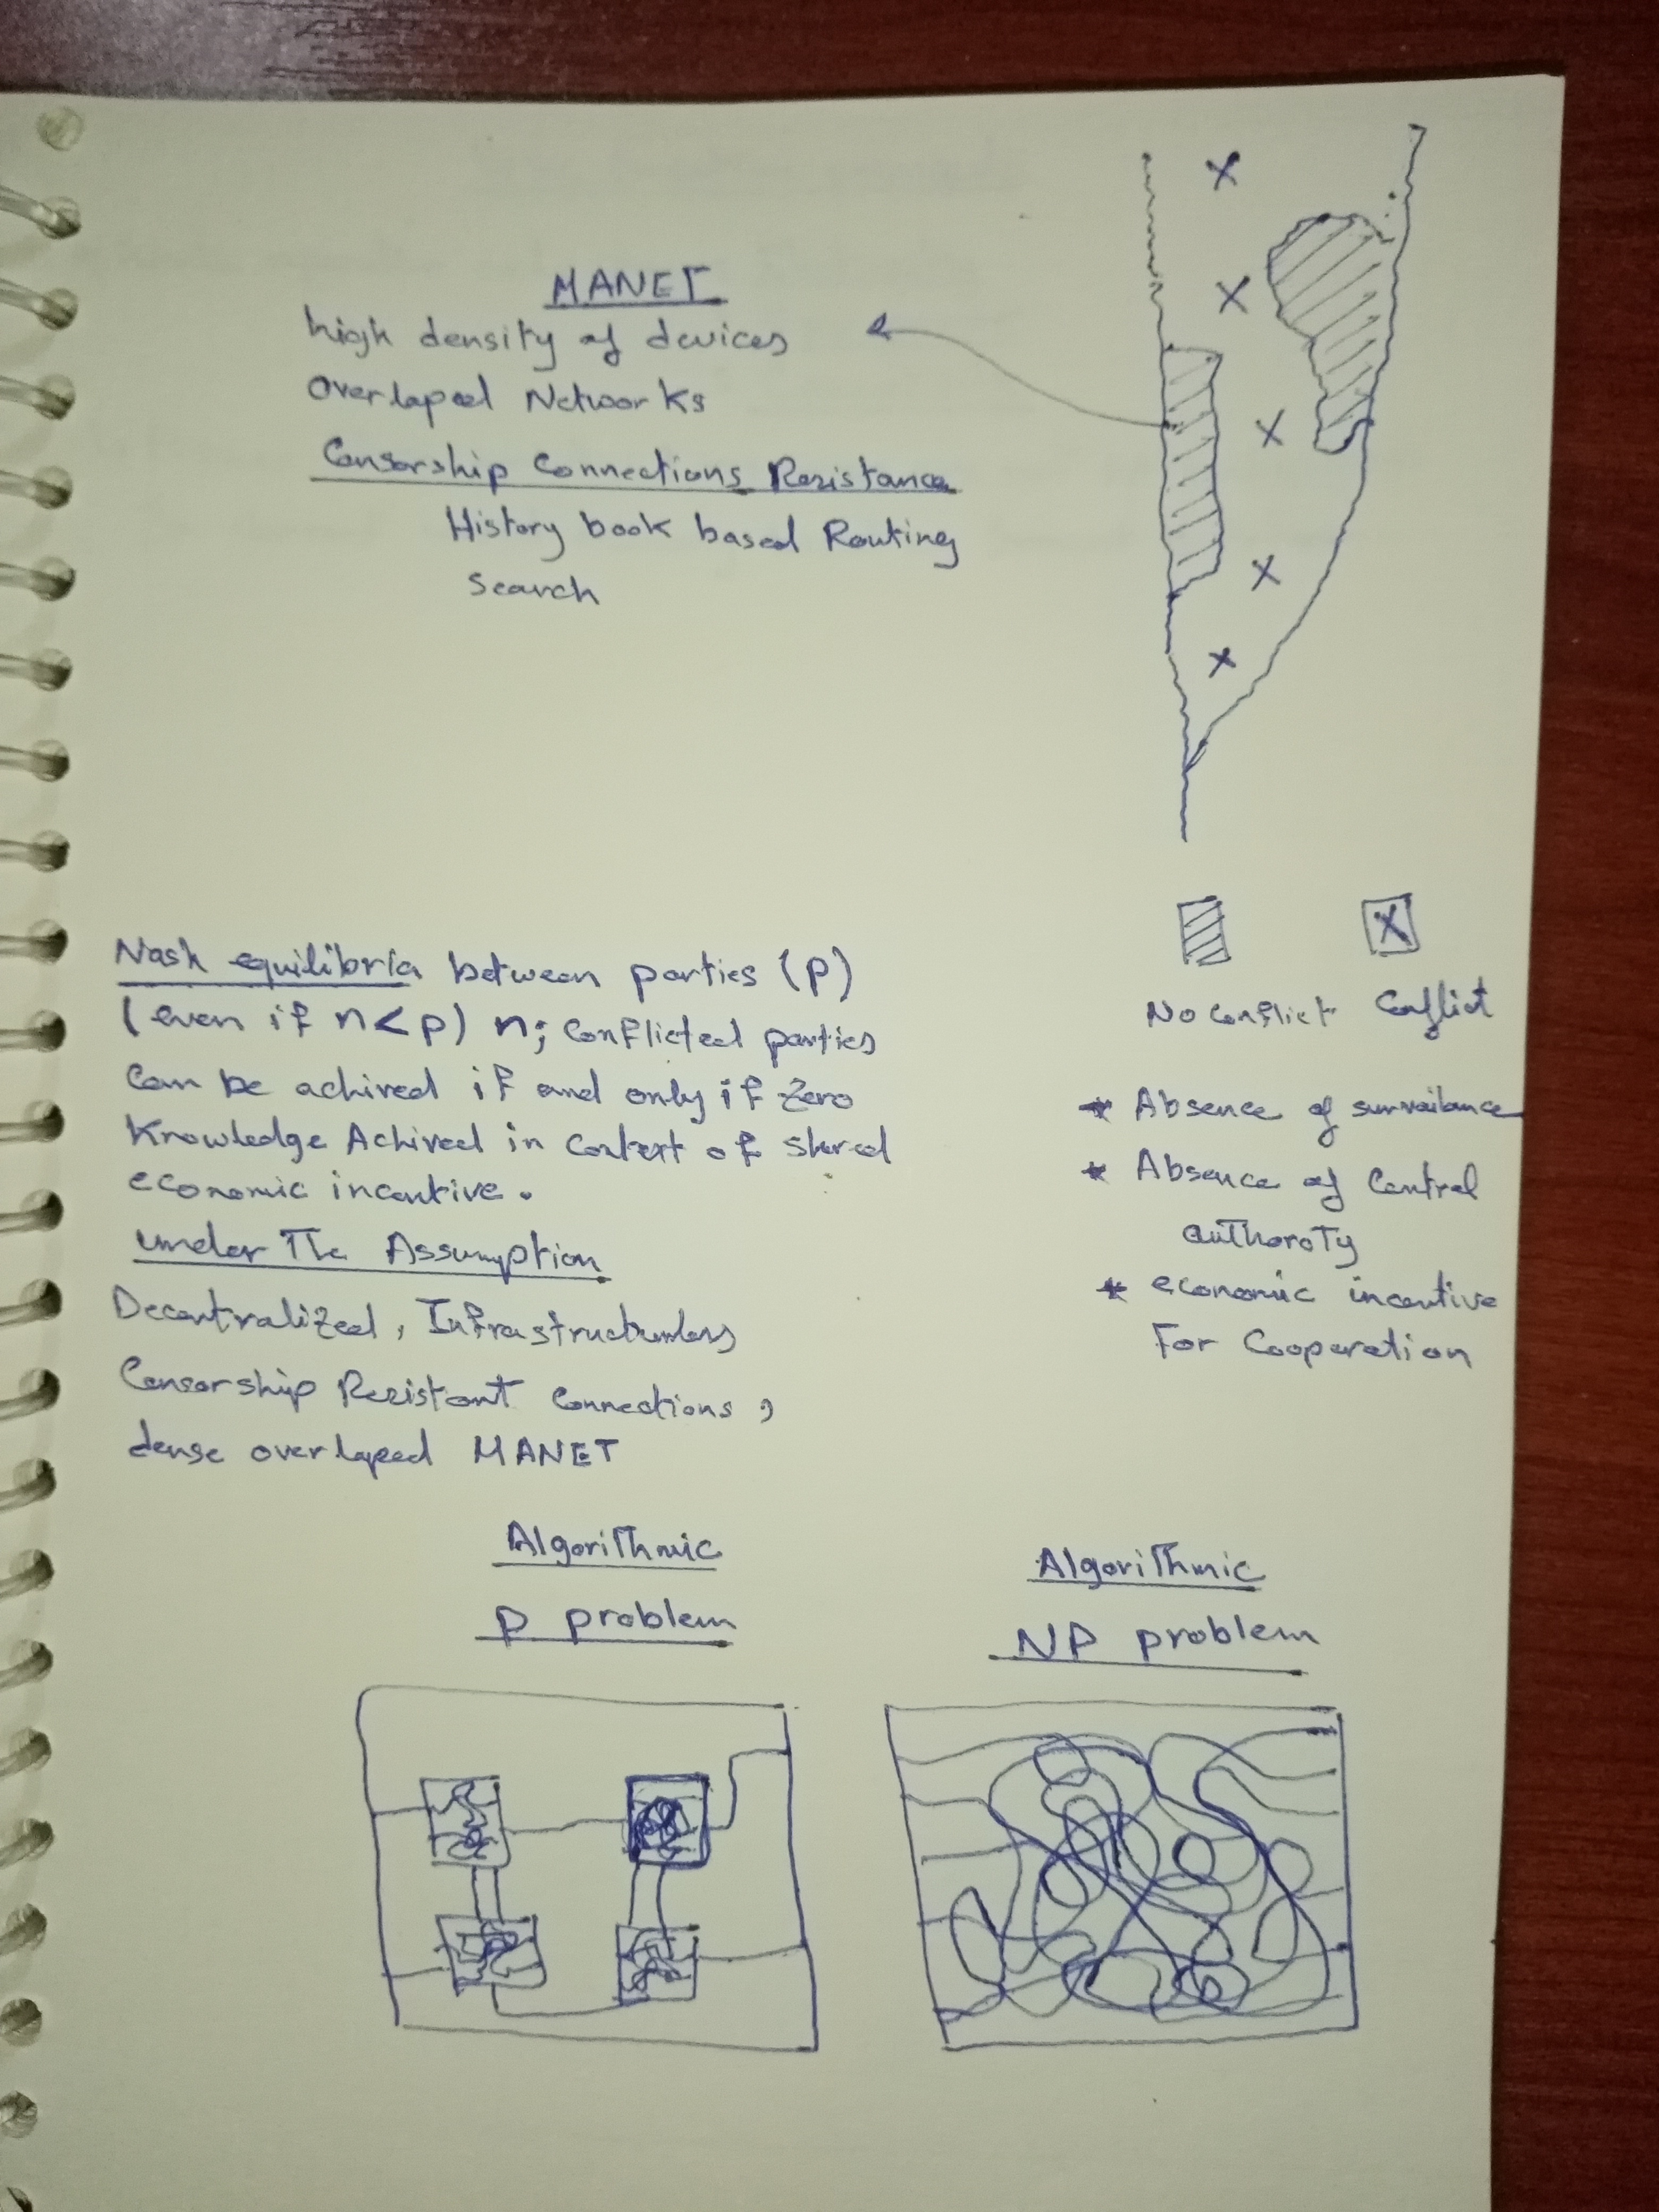 MANET
high density of devices
Overlaped Networks
Censorship Connections Resistance
History book based Routing
Search
No conflict Conflict
Nash equilibria between parties (p)
(even if n<p) n; conflicted parties
can be achived if and only if Zero
Knowledge Achived in context of shared
economic incentive.
under The Assumption
Decentralized, Infrastructureless
Censorship Resistant connections,
dense overlaped MANET
* Absence of survailance
* Absence of Central
authoroty
* economic incentive
For Cooperation
Algorithmic
P problem
Algorithmic
NP problem